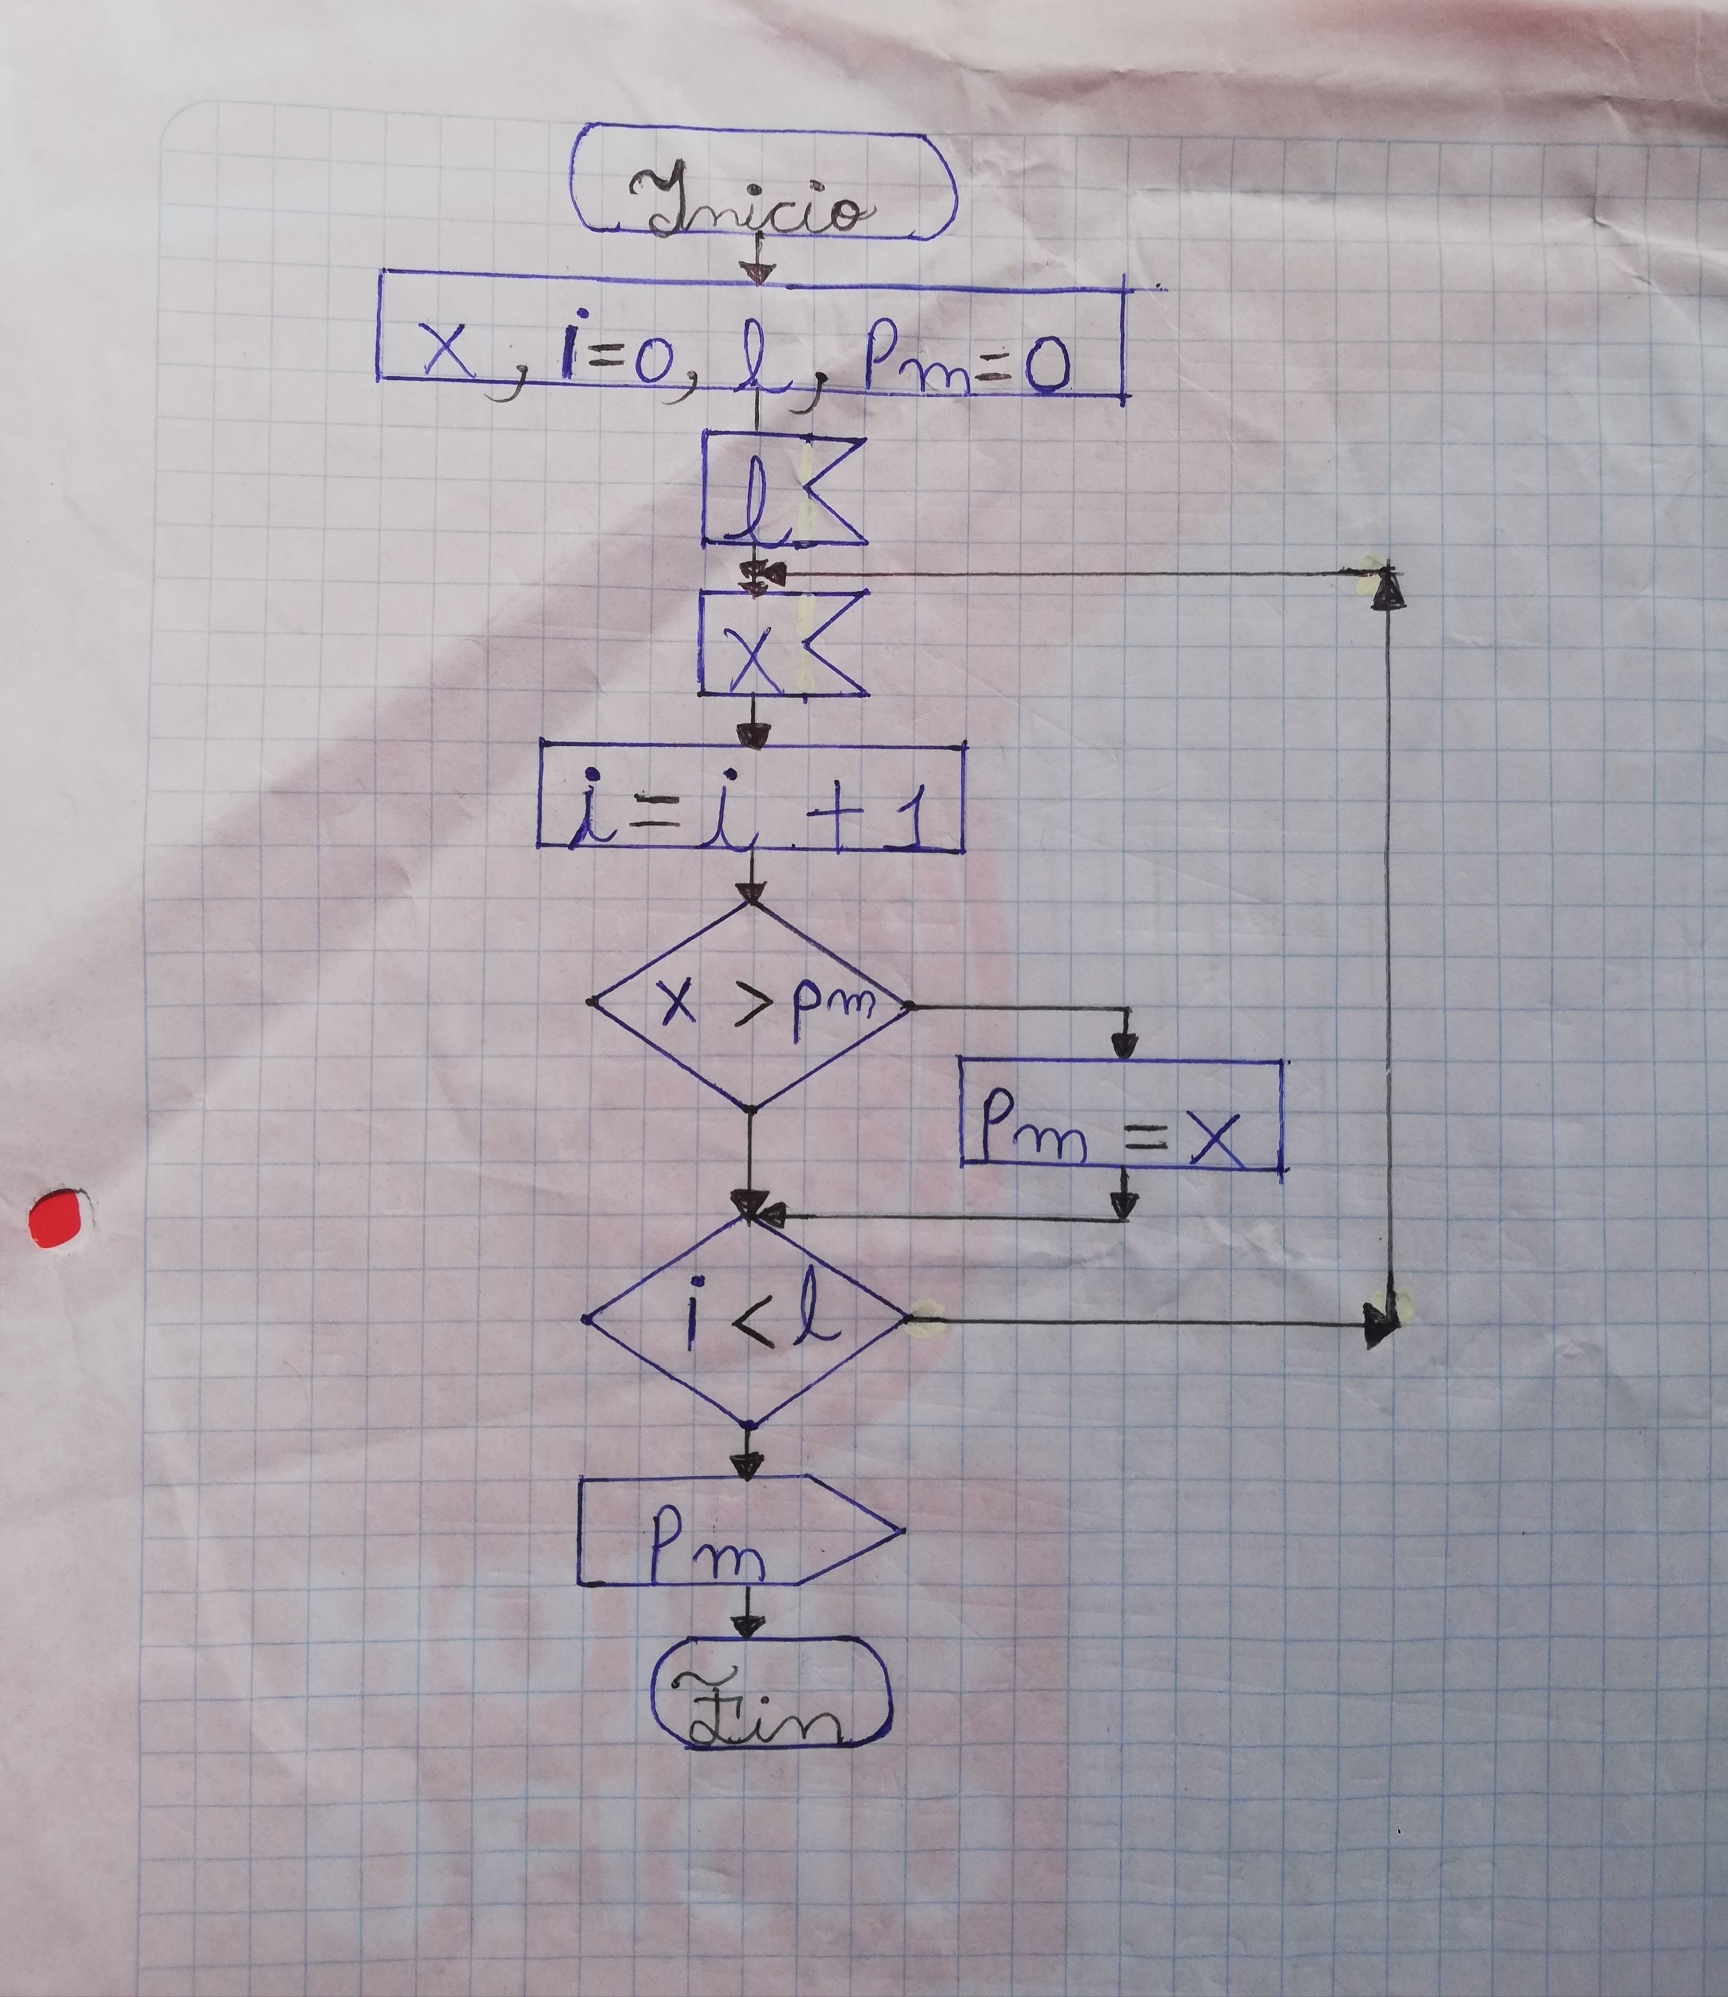 Inicio
x, i=0, l, Pm=0
l
x
i=i+1
x > pm
Pm = x
i < l
Pm
Fin